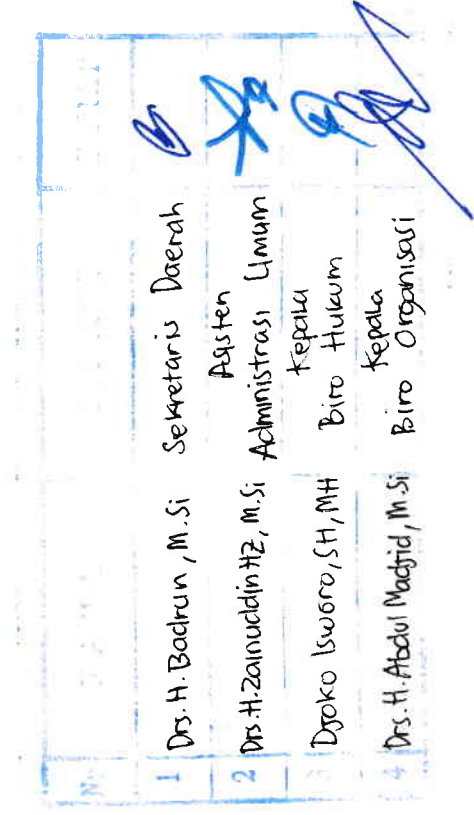 1 Drs. H. Badrun, M.Si Sekretaris Daerah
2 Drs. H. Zainuddin HZ, M.Si Asisten
Administrasi Umum
3 Djoko Isworo, SH, MH Kepala
Biro Hukum
4 Drs. H. Abdul Madjid, M.Si Kepala
Biro Organisasi